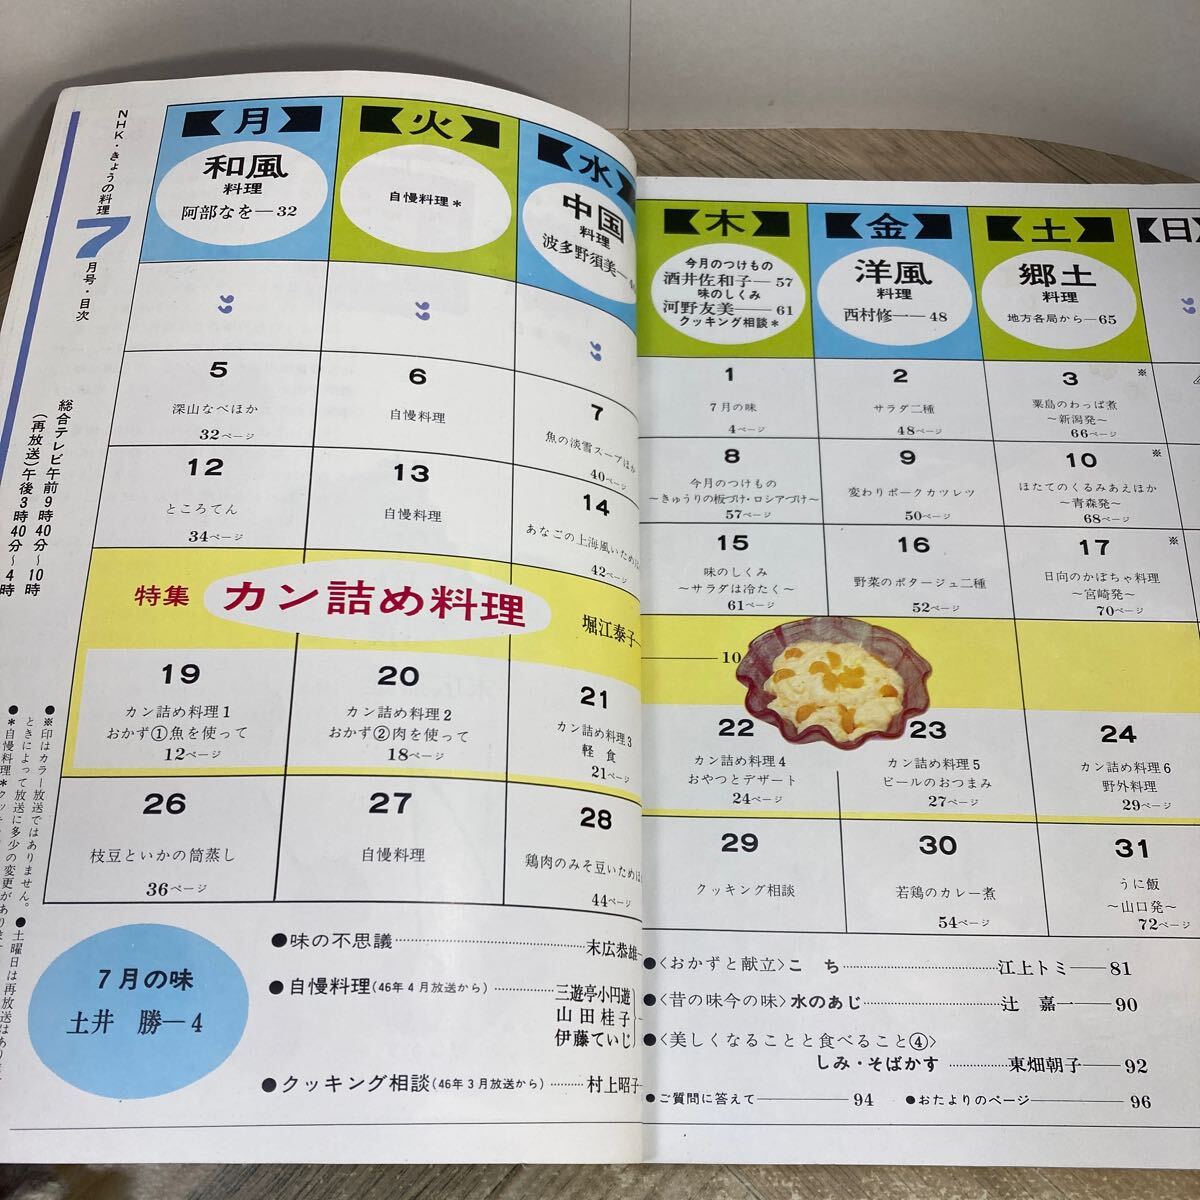 NHK・きょうの料理
7
月号・目次
総合テレビ午前9時40分〜10時
(再放送)午後3時40分〜4時
●※印はカラー放送ではありません。
●土曜日は再放送は
ときによって放送に多少の変更が
月
和風
料理
阿部なを—32
火
自慢料理*
水
中国
料理
波多野須美—
木
今月のつけもの
酒井佐和子—57
味のしくみ
河野友美—61
クッキング相談*
金
洋風
料理
西村修一—48
土
郷土
料理
地方各局から—65
日
5
深山なべほか
32ページ
6
自慢料理
7
魚の淡雪スープほか
40ページ
1
7月の味
4ページ
2
サラダ二種
48ページ
3
※
粟島のわっぱ煮
〜新潟発〜
66ページ
12
ところてん
34ページ
13
自慢料理
14
あなごの上海風いため
42ページ
8
今月のつけもの
〜きゅうりの板づけ・ロシアづけ〜
57ページ
9
変わりポークカツレツ
50ページ
10
※
ほたてのくるみあえほか
〜青森発〜
68ページ
15
味のしくみ
〜サラダは冷たく〜
61ページ
16
野菜のポタージュ二種
52ページ
17
※
日向のかぼちゃ料理
〜宮崎発〜
70ページ
特集 カン詰め料理
堀江泰子—
—10
19
カン詰め料理1
おかず①魚を使って
12ページ
20
カン詰め料理2
おかず②肉を使って
18ページ
21
カン詰め料理3
軽食
21ページ
22
カン詰め料理4
おやつとデザート
24ページ
23
カン詰め料理5
ビールのおつまみ
27ページ
24
カン詰め料理6
野外料理
29ページ
26
枝豆といかの筒蒸し
36ページ
27
自慢料理
28
鶏肉のみそ豆いため
44ページ
29
クッキング相談
30
若鶏のカレー煮
54ページ
31
うに飯
〜山口発〜
72ページ
7月の味
土井 勝—4
●味の不思議………末広恭雄—
●自慢料理(46年4月放送から)………三遊亭小円遊
山田桂子
伊藤ていじ
●クッキング相談(46年3月放送から)………村上昭子
●〈おかずと献立〉こち………江上トミ—81
●〈昔の味今の味〉水のあじ………辻 嘉一—90
●〈美しくなることと食べること④〉
しみ・そばかす………東畑朝子—92
●ご質問に答えて—94 ●おたよりのページ—96